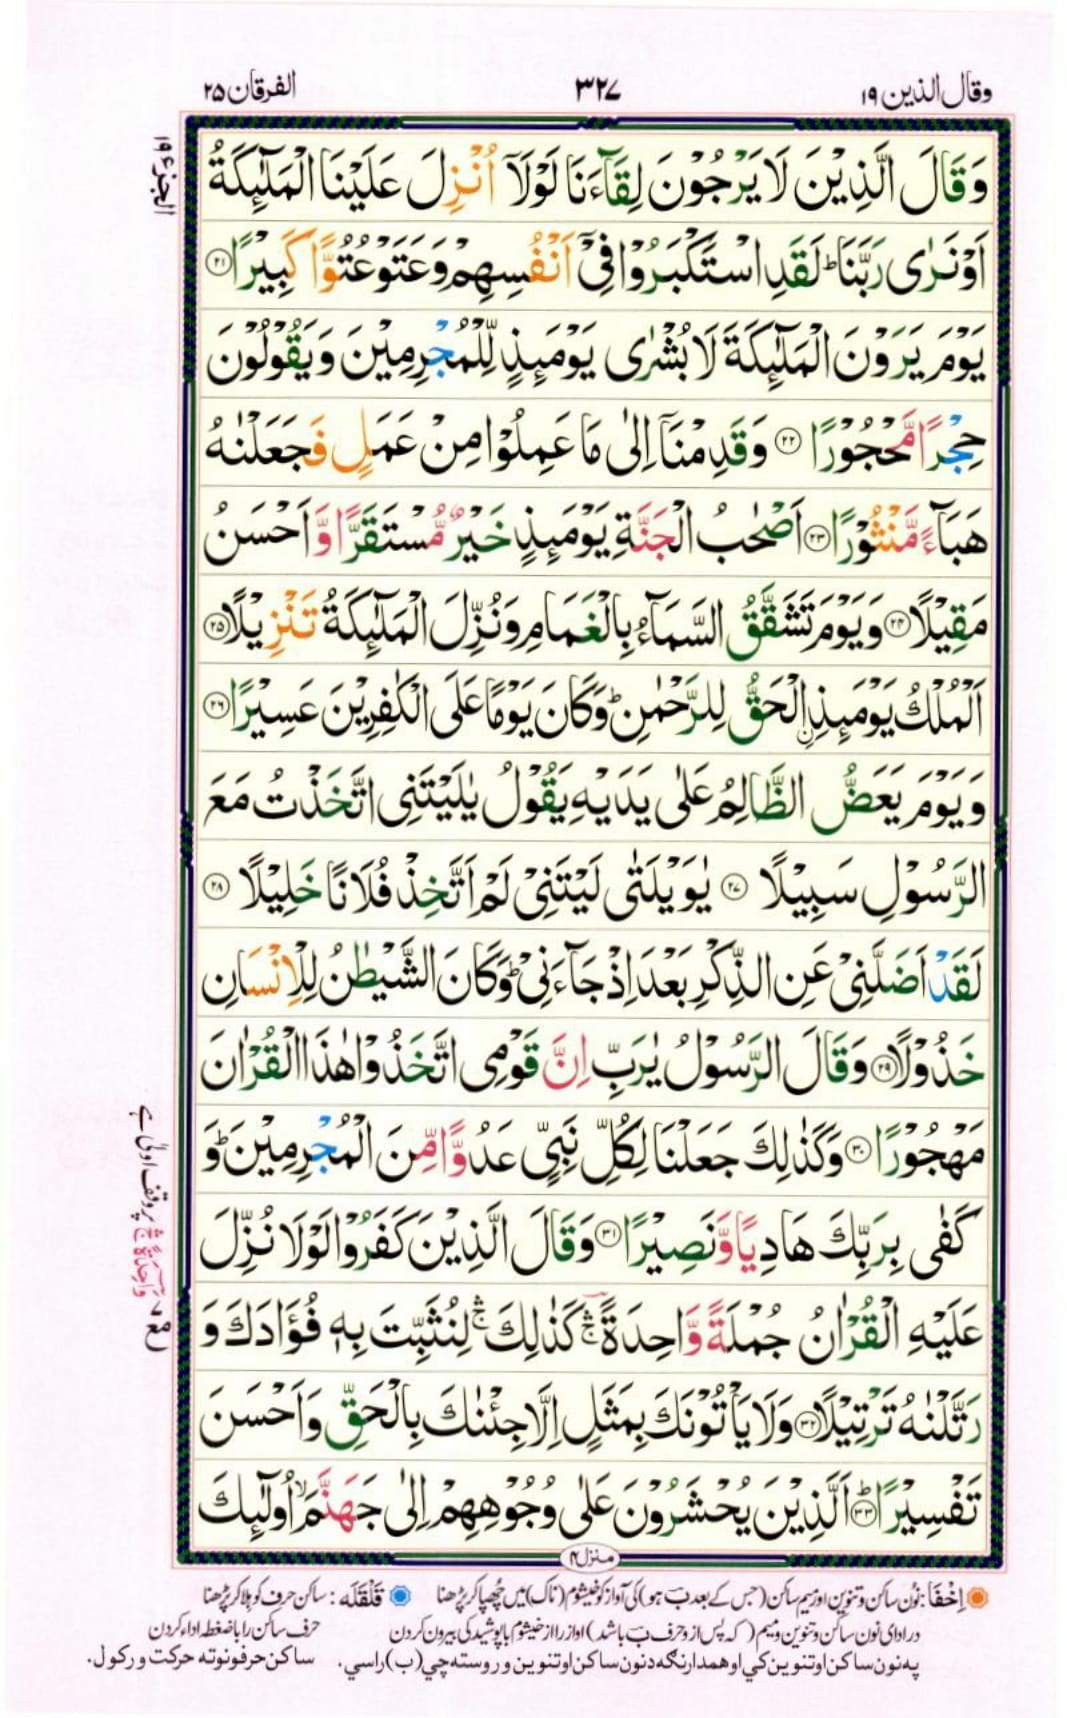 وقال الذين ١٩
٣٢٧
الفرقان ٢٥
الجزء ١٩
وَقَالَ الَّذِيْنَ لَا يَرْجُوْنَ لِقَآءَنَا لَوْلَآ اُنْزِلَ عَلَيْنَا الْمَلٰٓئِكَةُ
اَوْ نَرٰى رَبَّنَا ؕ لَقَدِ اسْتَكْبَرُوْا فِيْٓ اَنْفُسِهِمْ وَعَتَوْ عُتُوًّا كَبِيْرًا ﴿٢١﴾
يَوْمَ يَرَوْنَ الْمَلٰٓئِكَةَ لَا بُشْرٰى يَوْمَئِذٍ لِّلْمُجْرِمِيْنَ وَيَقُوْلُوْنَ
حِجْرًا مَّحْجُوْرًا ﴿٢٢﴾ وَقَدِمْنَآ اِلٰى مَا عَمِلُوْا مِنْ عَمَلٍ فَجَعَلْنٰهُ
هَبَآءً مَّنْثُوْرًا ﴿٢٣﴾ اَصْحٰبُ الْجَنَّةِ يَوْمَئِذٍ خَيْرٌ مُّسْتَقَرًّا وَّاَحْسَنُ
مَقِيْلًا ﴿٢٤﴾ وَيَوْمَ تَشَقَّقُ السَّمَآءُ بِالْغَمَامِ وَنُزِّلَ الْمَلٰٓئِكَةُ تَنْزِيْلًا ﴿٢٥﴾
اَلْمُلْكُ يَوْمَئِذِ اِۨلْحَقُّ لِلرَّحْمٰنِ ؕ وَكَانَ يَوْمًا عَلَى الْكٰفِرِيْنَ عَسِيْرًا ﴿٢٦﴾
وَيَوْمَ يَعَضُّ الظَّالِمُ عَلٰى يَدَيْهِ يَقُوْلُ يٰلَيْتَنِى اتَّخَذْتُ مَعَ
الرَّسُوْلِ سَبِيْلًا ﴿٢٧﴾ يٰوَيْلَتٰى لَيْتَنِيْ لَمْ اَتَّخِذْ فُلَانًا خَلِيْلًا ﴿٢٨﴾
لَقَدْ اَضَلَّنِيْ عَنِ الذِّكْرِ بَعْدَ اِذْ جَآءَنِيْ ؕ وَكَانَ الشَّيْطٰنُ لِلْاِنْسَانِ
خَذُوْلًا ﴿٢٩﴾ وَقَالَ الرَّسُوْلُ يٰرَبِّ اِنَّ قَوْمِى اتَّخَذُوْا هٰذَا الْقُرْاٰنَ
مَهْجُوْرًا ﴿٣٠﴾ وَكَذٰلِكَ جَعَلْنَا لِكُلِّ نَبِيٍّ عَدُوًّا مِّنَ الْمُجْرِمِيْنَ ؕ وَ
كَفٰى بِرَبِّكَ هَادِيًا وَّنَصِيْرًا ﴿٣١﴾ وَقَالَ الَّذِيْنَ كَفَرُوْا لَوْلَا نُزِّلَ
عَلَيْهِ الْقُرْاٰنُ جُمْلَةً وَّاحِدَةً ۛۚ كَذٰلِكَ ۛۚ لِنُثَبِّتَ بِهٖ فُؤَادَكَ وَ
رَتَّلْنٰهُ تَرْتِيْلًا ﴿٣٢﴾ وَلَا يَاْتُوْنَكَ بِمَثَلٍ اِلَّا جِئْنٰكَ بِالْحَقِّ وَاَحْسَنَ
تَفْسِيْرًا ﴿٣٣﴾ ؕ اَلَّذِيْنَ يُحْشَرُوْنَ عَلٰى وُجُوْهِهِمْ اِلٰى جَهَنَّمَ ۙ اُولٰٓئِكَ
وَاحِدَةً ۚ پر وقف اولیٰ ہے
منزل ٤
اِخْفَا: نون ساکن و تنوین اور میم ساکن (جس کے بعد ب ہو) کی آواز کو خیشوم (ناک) میں چُھپا کر پڑھنا
قَلْقَلَه: ساکن حرف کو ہلا کر پڑھنا
در ادای نون ساکن و تنوین و میم (که پس از و حرف ب باشد) آواز را از خیشوم با پوشیدگی بیرون کردن
حرف ساکن را با ضغطه اداء کردن
په نون ساکن او تنوین کي او همدارنګه د نون ساکن او تنوین وروسته چي (ب) راسي.
ساکن حرفونو ته حرکت ورکول.